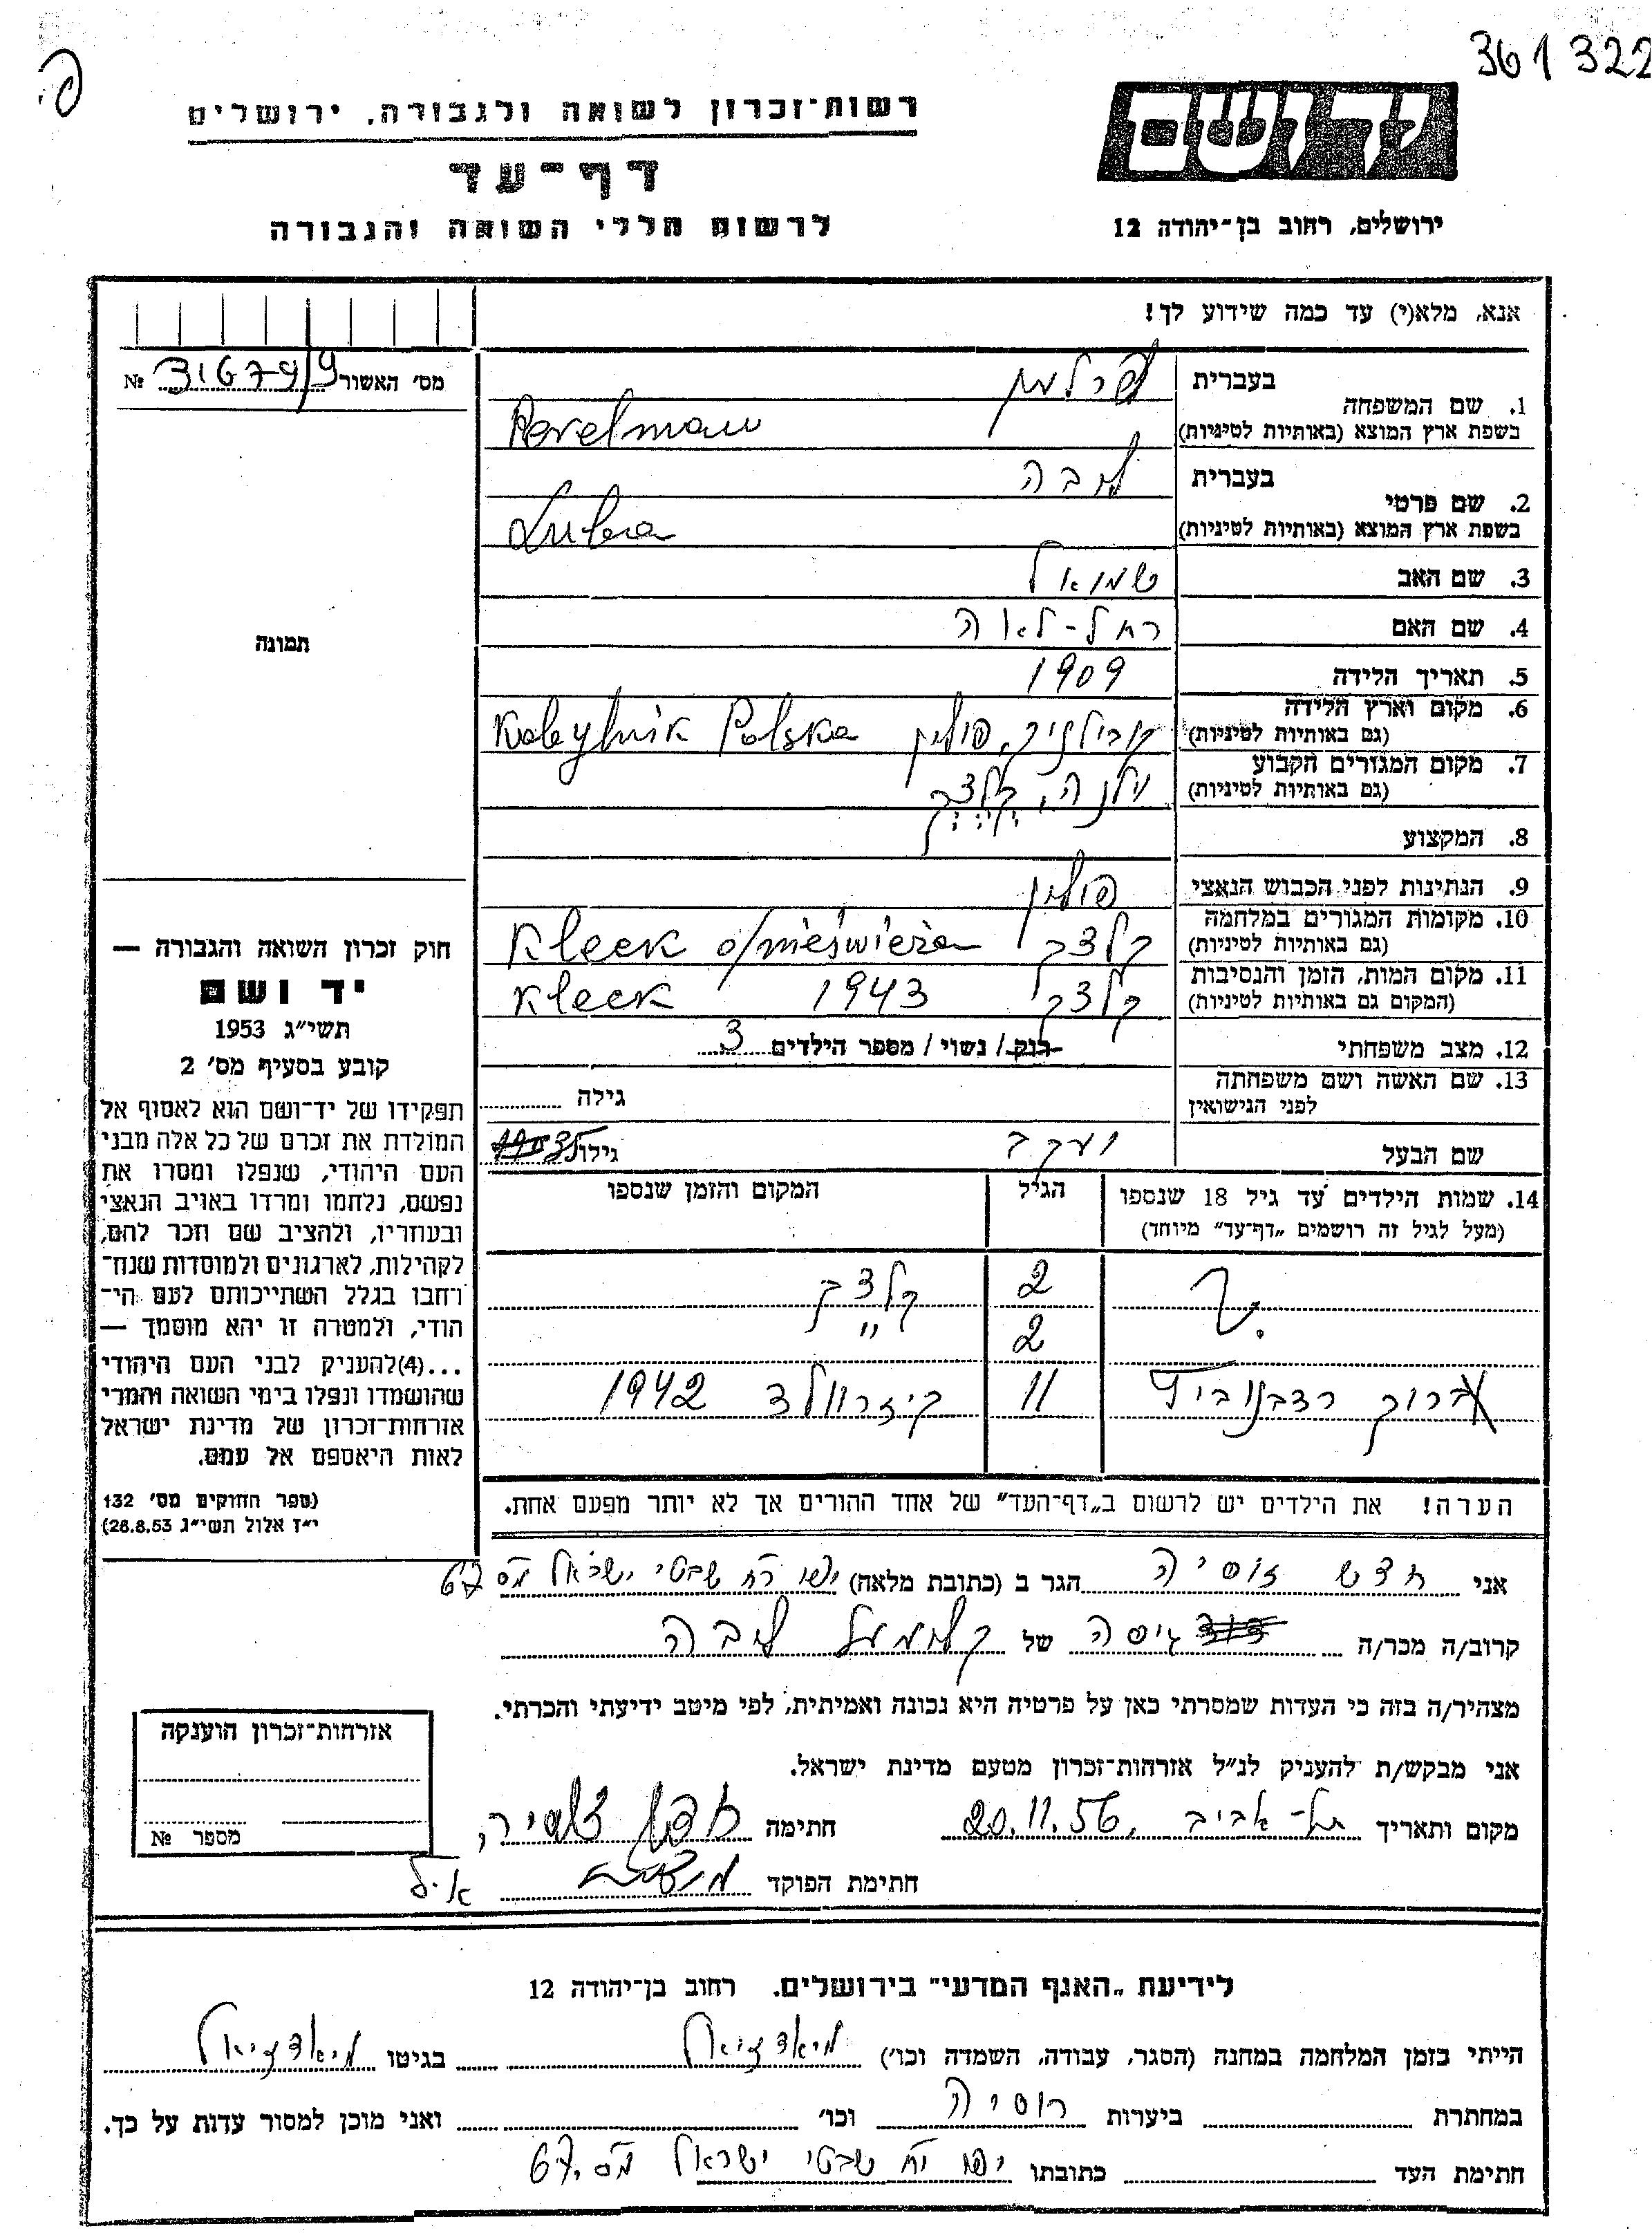 361322
פ.
רשות־זכרון לשואה ולגבורה, ירושלים
יד ושם
דף־עד
לרשום חללי השואה והגבורה
ירושלים, רחוב בן־יהודה 12
אנא, מלא(י) עד כמה שידוע לך!
מס׳ האשור 31679/9 №
1. שם המשפחה
בעברית פרלמן
בשפת ארץ המוצא (באותיות לטיניות) Perelman
2. שם פרטי
בעברית לובה
בשפת ארץ המוצא (באותיות לטיניות) Luba
3. שם האב שמואל
4. שם האם רחל-לאה
5. תאריך הלידה 1909
6. מקום וארץ הלידה קובילניק, פולין Kobylnik Polska
(גם באותיות לטיניות)
7. מקום המגורים הקבוע וילנה, קלצק
(גם באותיות לטיניות)
8. המקצוע
9. הנתינות לפני הכבוש הנאצי פולין
10. מקומות המגורים במלחמה קלצק Kleck o/nieświeża
(גם באותיות לטיניות)
11. מקום המות, הזמן והנסיבות קלצק 1943 Kleck
(המקום גם באותיות לטיניות)
12. מצב משפחתי רוק / נשוי / מספר הילדים 3
13. שם האשה ושם משפחתה
לפני הנישואין
גילה
שם הבעל יעקב גילו 35
14. שמות הילדים עד גיל 18 שנספו הגיל המקום והזמן שנספו
(מעל לגיל זה רושמים „דף־עד״ מיוחד)
2 קלצק
2 ״
11 1942
הערה! את הילדים יש לרשום ב„דף־העד״ של אחד ההורים אך לא יותר מפעם אחת.
תמונה
חוק זכרון השואה והגבורה —
יד ושם
תשי״ג 1953
קובע בסעיף מס׳ 2
תפקידו של יד־ושם הוא לאסוף אל
המולדת את זכרם של כל אלה מבני
העם היהודי, שנפלו ומסרו את
נפשם, נלחמו ומרדו באויב הנאצי
ובעוזריו, ולהציב שם וזכר להם,
לקהילות, לארגונים ולמוסדות שנח־
רחבו בגלל השתייכותם לעם הי־
הודי, ולמטרה זו יהא מוסמך —
...(4)להעניק לבני העם היהודי
שהושמדו ונפלו בימי השואה והמרי
אזרחות־זכרון של מדינת ישראל
לאות היאספם אל עמם.
(ספר החוקים מס׳ 132
י״ז אלול תשי״ג 28.8.53)
אני חדש זוסיה הגר ב (כתובת מלאה) יפו רח׳ שבטי ישראל מס 67
קרוב/ה מכר/ה גיסה של לובה
מצהיר/ה בזה כי העדות שמסרתי כאן על פרטיה היא נכונה ואמיתית, לפי מיטב ידיעתי והכרתי.
אני מבקש/ת להעניק לנ״ל אזרחות־זכרון מטעם מדינת ישראל.
מקום ותאריך תל-אביב 20.11.56 חתימה
חתימת הפוקד
אזרחות־זכרון הוענקה
מספר №
לידיעת „האגף המדעי״ בירושלים. רחוב בן־יהודה 12
הייתי בזמן המלחמה במחנה (הסגר, עבודה, השמדה וכו׳) מיאדזיאל בגיטו מיאדזיאל
במחתרת ביערות רוסיה וכו׳ ואני מוכן למסור עדות על כך.
חתימת העד כתובתו יפו רח שבטי ישראל מס. 67